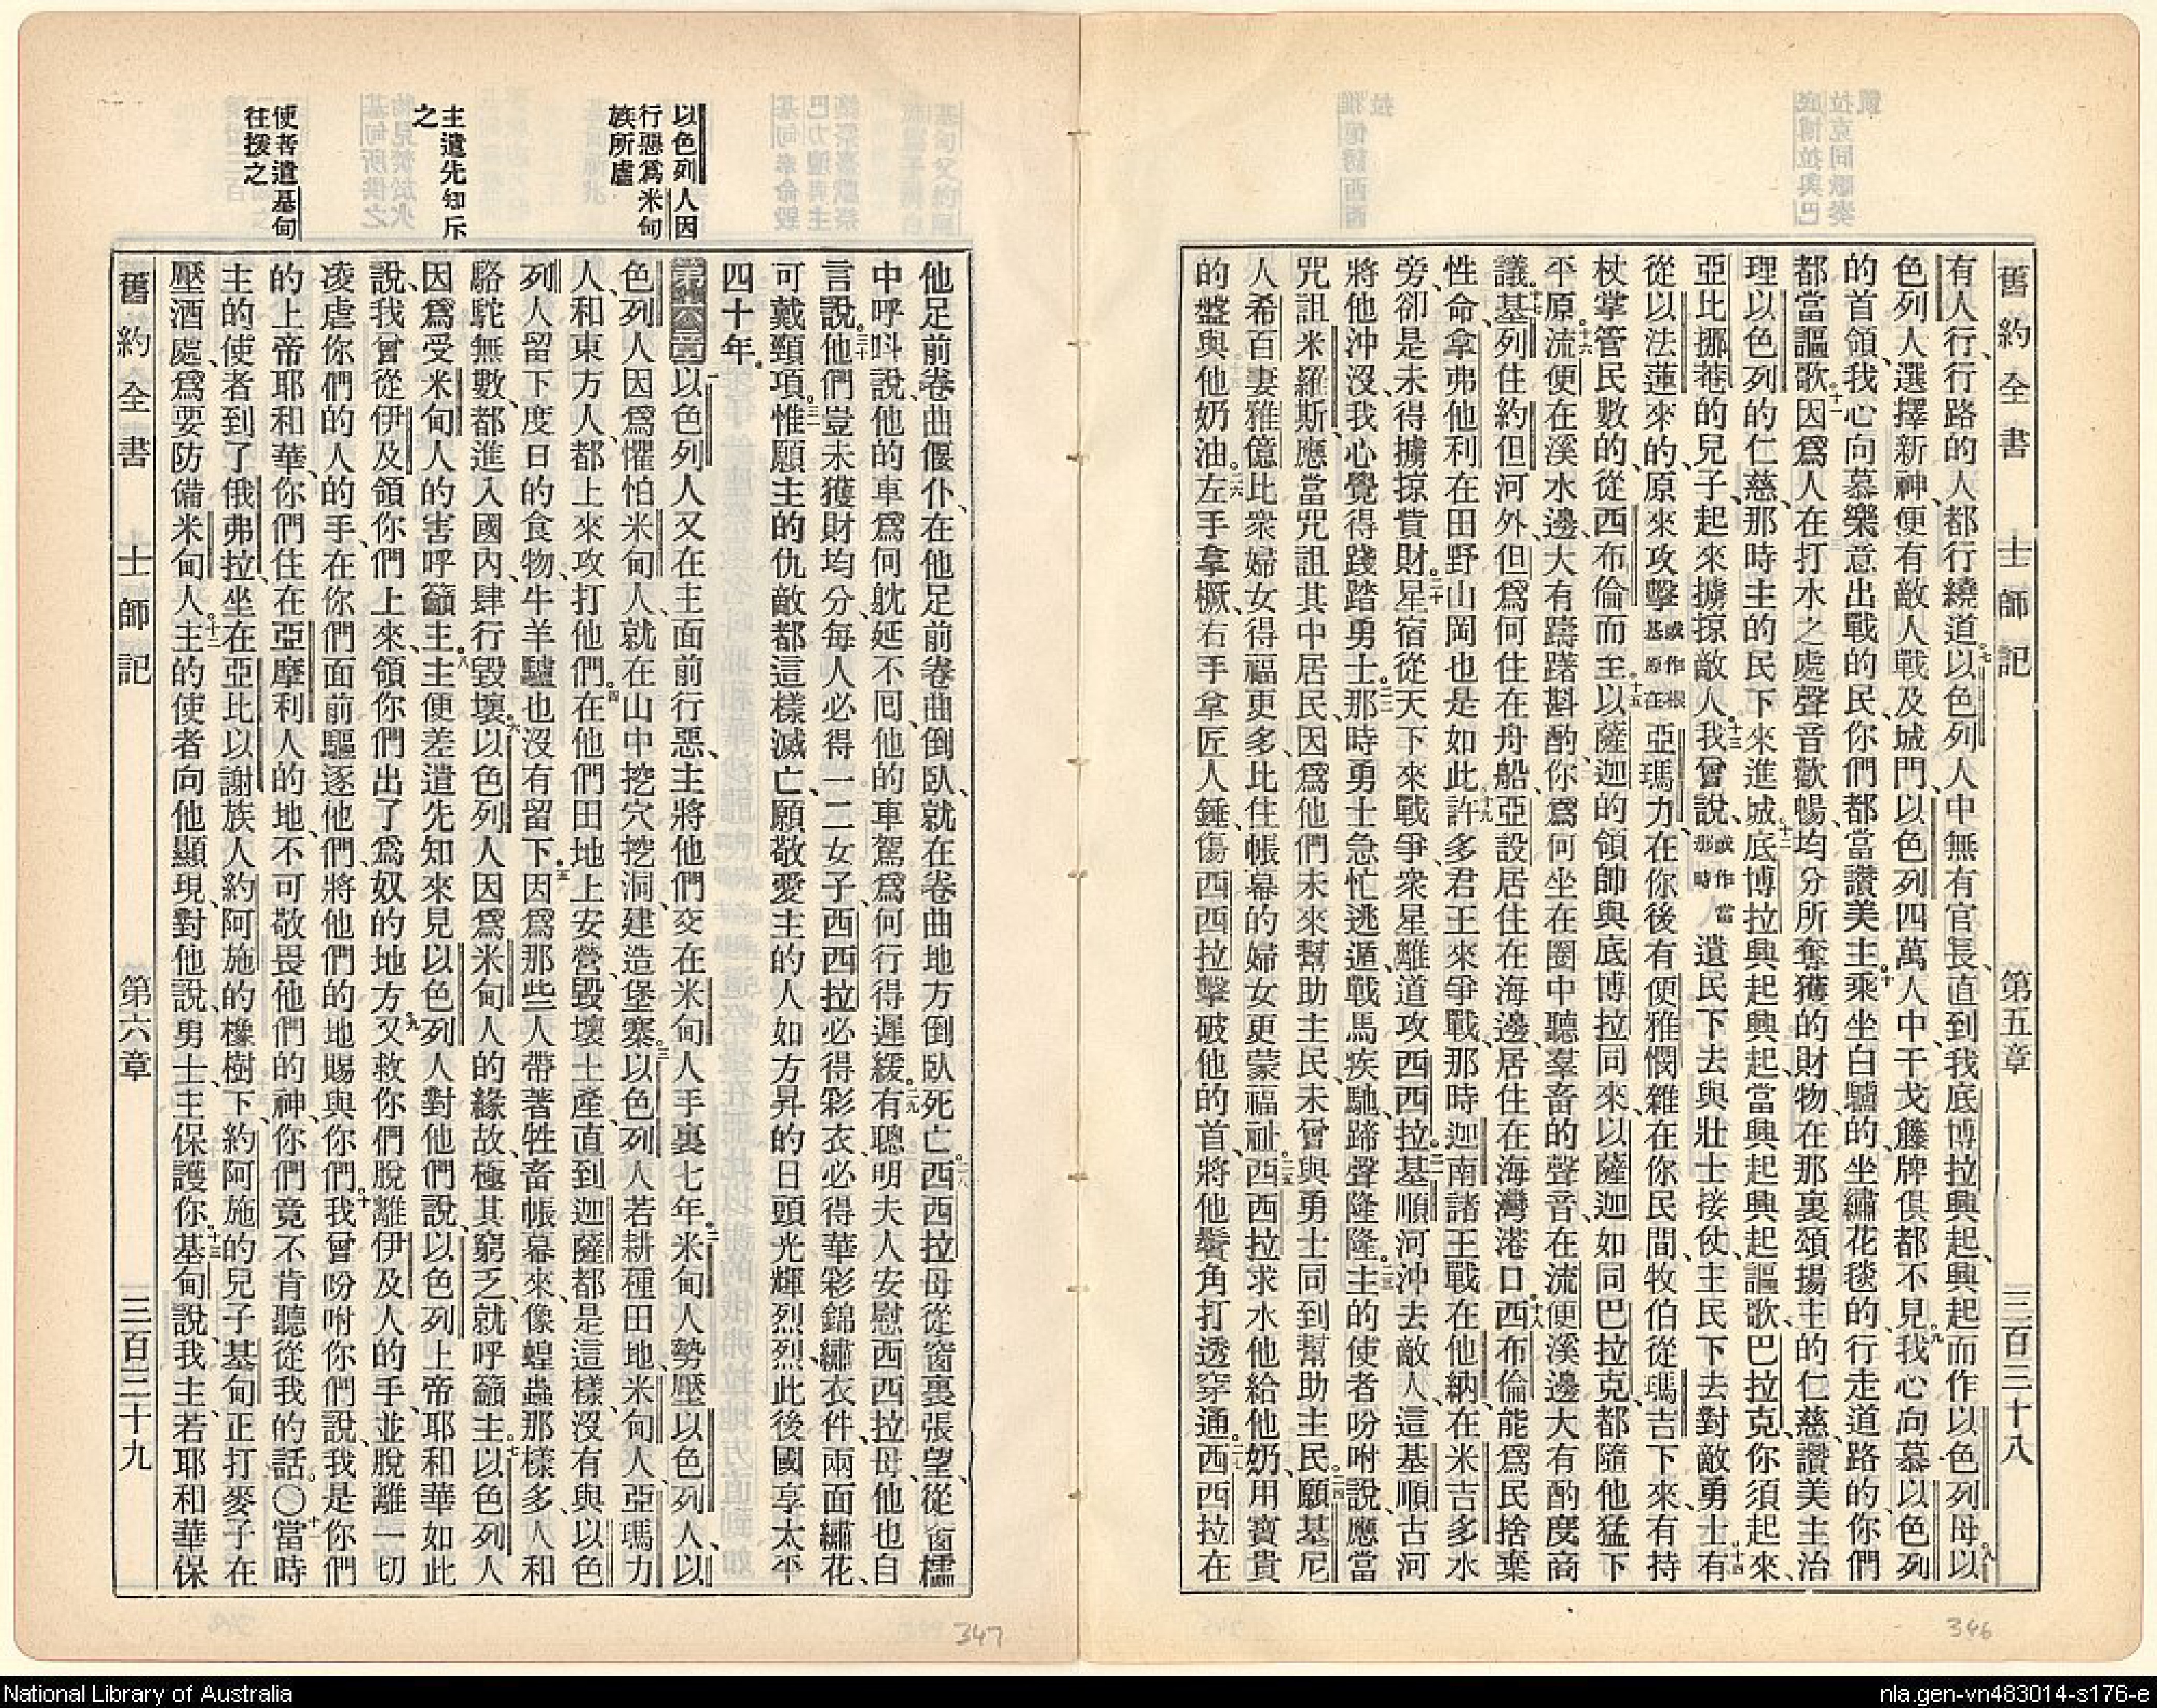 舊約全書 士師記 第五章 三百三十八
有人行、行路的人、都行繞道。七以色列人中無有官長、直到我底博拉興起、興起而作以色列母。八以
色列人選擇新神、便有敵人戰及城門、以色列四萬人中、干戈籐牌俱都不見。九我心向慕以色列
的首領、我心向慕樂意出戰的民、你們都當讚美主。十乘坐白驢的、坐繡花毯的、行走道路的、你們
都當謳歌。十一因爲人在打水之處、聲音歡暢、均分所奪獲的財物、在那裏頌揚主的仁慈、讚美主治
理以色列的仁慈、那時主的民下來進城。十二底博拉興起興起、當興起興起謳歌、巴拉克你須起來、
亞比挪菴的兒子、起來擄掠敵人。十三我曾說、或作當那時遺民下去與壯士接仗、主民下去對敵勇士。十四有
從以法蓮來的、原來攻擊或作根基原在亞瑪力、在你後有便雅憫雜在你民間、牧伯從瑪吉下來、有持
杖掌管民數的、從西布倫而至。十五以薩迦的領帥與底博拉同來、以薩迦如同巴拉克、都隨他猛下
平原。十六流便在溪水邊、大有躊躇斟酌、你爲何坐在圈中、聽羣畜的聲音、在流便溪邊大有酌度商
議。十七基列住約但河外、但爲何住在舟船、亞設居住在海邊、居住在海灣港口。十八西布倫能爲民捨棄
性命、拿弗他利在田野山岡也是如此。十九許多君王來爭戰、那時迦南諸王戰在他納、在米吉多水
旁、卻是未得擄掠貲財。二十星宿從天下來戰爭、衆星離道攻西西拉。二一基順河沖去敵人、這基順古河
將他沖沒、我心覺得踐踏勇士。二二那時勇士急忙逃遁、戰馬疾馳、蹄聲隆隆。二三主的使者吩咐說、應當
咒詛米羅斯、應當咒詛其中居民、因爲他們未來幫助主民、未曾與勇士同到幫助主民。二四願基尼
人希百妻雅億比衆婦女得福更多、比住帳幕的婦女更蒙福祉。二五西西拉求水、他給他奶、用寶貴
的盤與他奶油。二六左手拿橛、右手拿匠人錘、傷西西拉、擊破他的首、將他鬢角打透穿通。二七西西拉在
以色列人因
行惡爲米甸
族所虐
主遣先知斥
之
使者遣基甸
往援之
他足前卷曲偃仆、在他足前卷曲倒臥、就在卷曲地方倒臥死亡。二八西西拉母從窗裏張望、從窗櫺
中呼呌說、他的車爲何躭延不囘、他的車駕爲何行得遲緩。二九有聰明夫人安慰西西拉母、他也自
言說。三十他們豈未獲財均分、每人必得一二女子、西西拉必得彩衣、必得華彩錦繡衣件、兩面繡花、
可戴頸項。三一惟願主的仇敵都這樣滅亡、願敬愛主的人如方昇的日頭光輝烈烈、此後國享太平
四十年。
第六章 一以色列人又在主面前行惡、主將他們交在米甸人手裏七年。二米甸人勢壓以色列人、以
色列人因爲懼怕米甸人、就在山中挖穴挖洞、建造堡寨。三以色列人若耕種田地、米甸人、亞瑪力
人、和東方人、都上來攻打他們。四在他們田地上安營、毀壞土產、直到迦薩、都是這樣、沒有與以色
列人留下度日的食物、牛羊驢也沒有留下。五因爲那些人帶著牲畜帳幕來、像蝗蟲那樣多、人和
駱駝無數、都進入國內、肆行毀壞。六以色列人因爲米甸人的緣故、極其窮乏、就呼籲主。七以色列人
因爲受米甸人的害呼籲主。八主便差遣先知來見以色列人、對他們說、以色列上帝耶和華如此
說、我曾從伊及領你們上來、領你們出了爲奴的地方。九又救你們脫離伊及人的手、並脫離一切
凌虐你們的人的手、在你們面前驅逐他們、將他們的地賜與你們。十我曾吩咐你們說、我是你們
的上帝耶和華、你們住在亞摩利人的地、不可敬畏他們的神、你們竟不肯聽從我的話。〇十一當時
主的使者到了俄弗拉、坐在亞比以謝族人約阿施的橡樹下、約阿施的兒子基甸正打麥子在
壓酒處、爲要防備米甸人。十二主的使者向他顯現、對他說、勇士、主保護你。十三基甸說、我主、若耶和華保
舊約全書 士師記 第六章 三百三十九
347
346
National Library of Australia
nla.gen-vn483014-s176-e